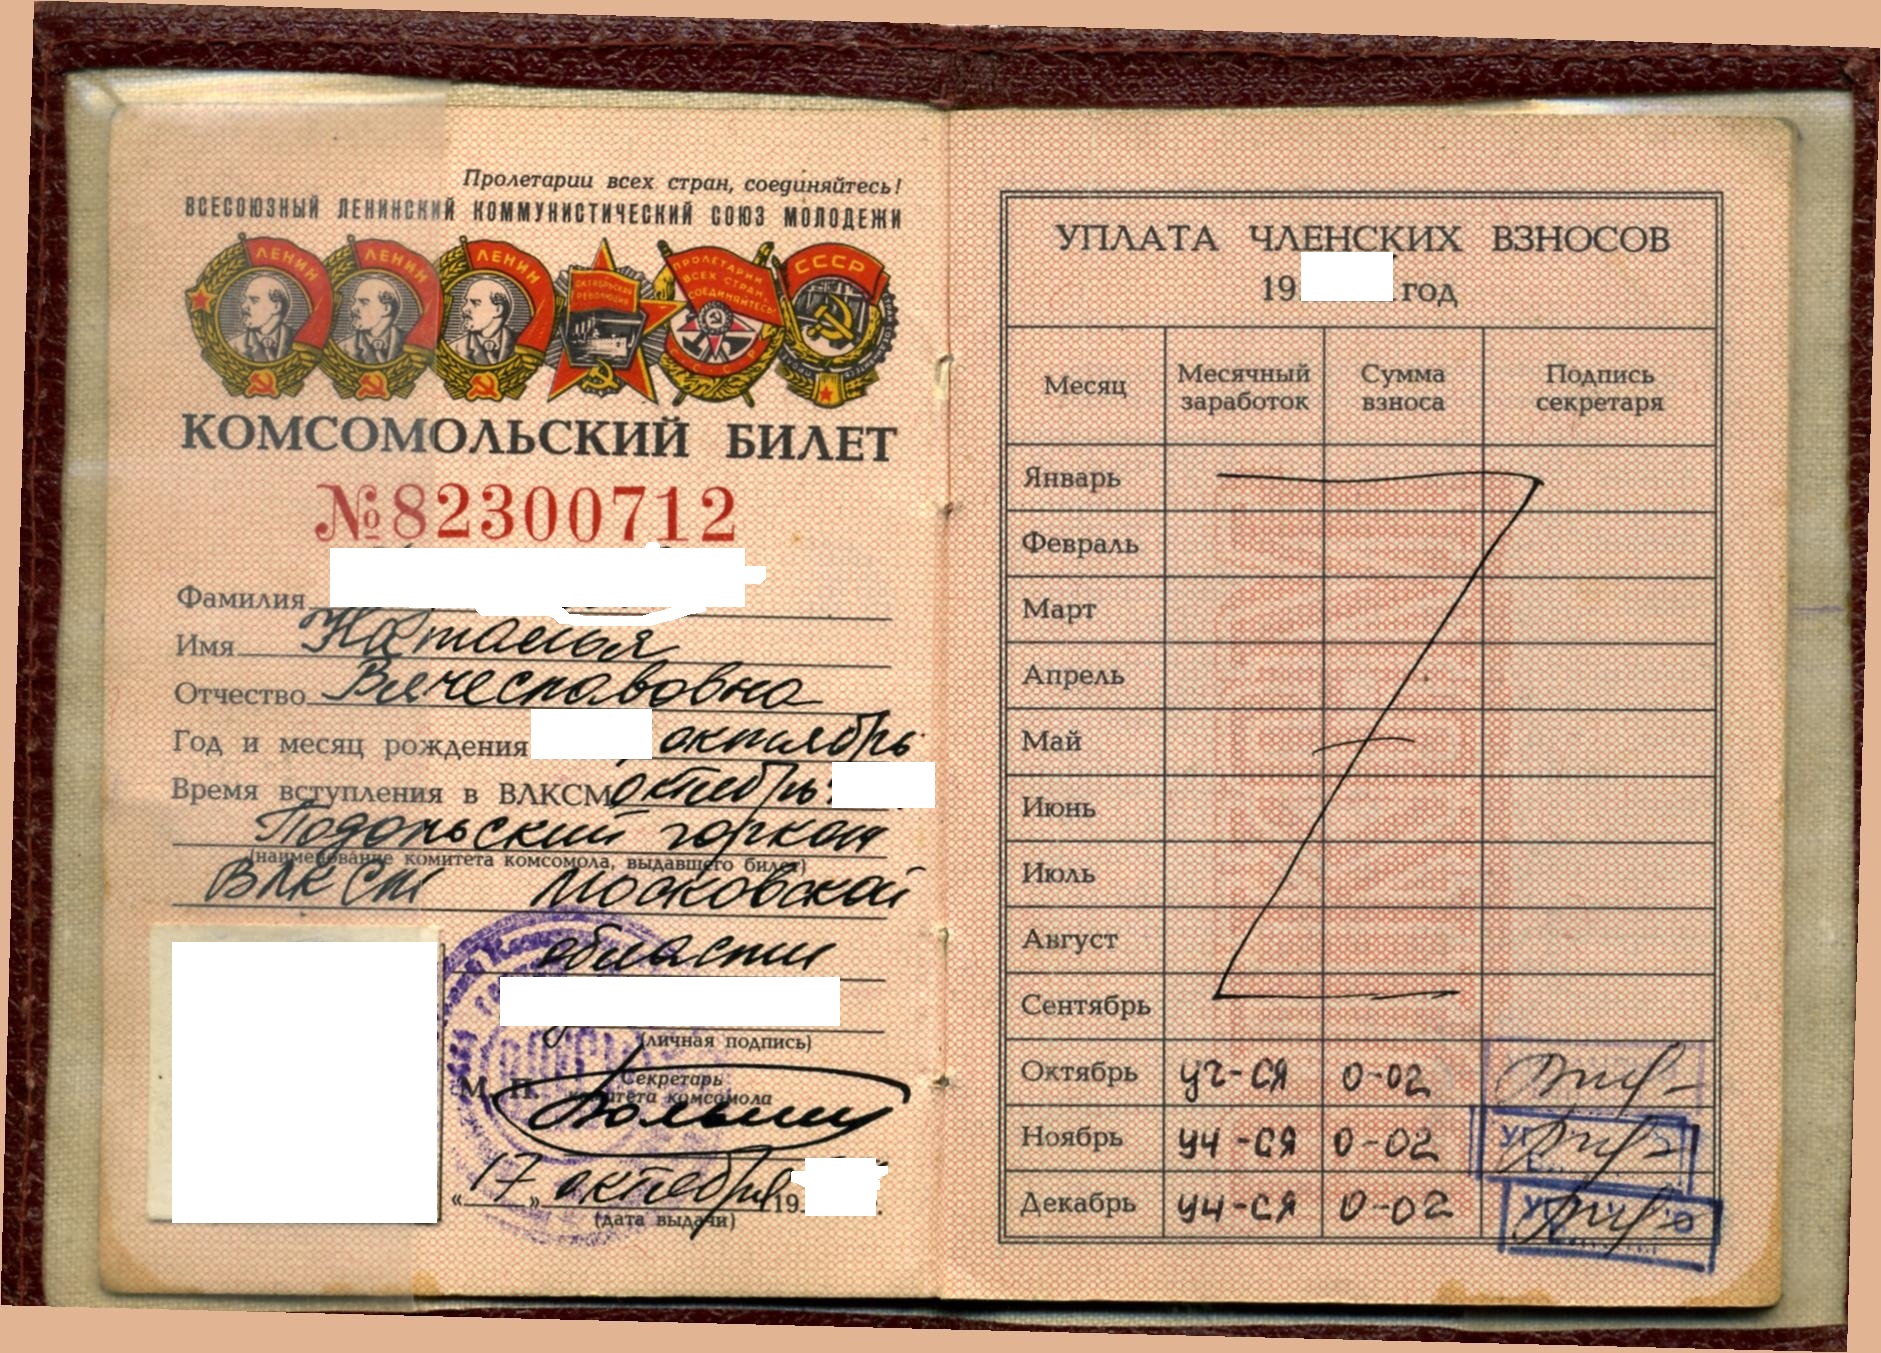 Пролетарии всех стран, соединяйтесь!
ВСЕСОЮЗНЫЙ ЛЕНИНСКИЙ КОММУНИСТИЧЕСКИЙ СОЮЗ МОЛОДЕЖИ
ЛЕНИН ЛЕНИН ЛЕНИН ОКТЯБРЬСКАЯ РЕВОЛЮЦИЯ ПРОЛЕТАРИИ ВСЕХ СТРАН, СОЕДИНЯЙТЕСЬ! СССР
КОМСОМОЛЬСКИЙ БИЛЕТ
№82300712
Фамилия
Имя Наталья
Отчество Вячеславовна
Год и месяц рождения октябрь
Время вступления в ВЛКСМ октябрь
Подольский горком
(наименование комитета комсомола, выдавшего билет)
ВЛКСМ Московской
области
(личная подпись)
М. П. Секретарь
комитета комсомола
«17» октября 19
(дата выдачи)
УПЛАТА ЧЛЕНСКИХ ВЗНОСОВ
19 год
Месяц Месячный заработок Сумма взноса Подпись секретаря
Январь
Февраль
Март
Апрель
Май
Июнь
Июль
Август
Сентябрь
Октябрь уч-ся 0-02
Ноябрь уч-ся 0-02
Декабрь уч-ся 0-02